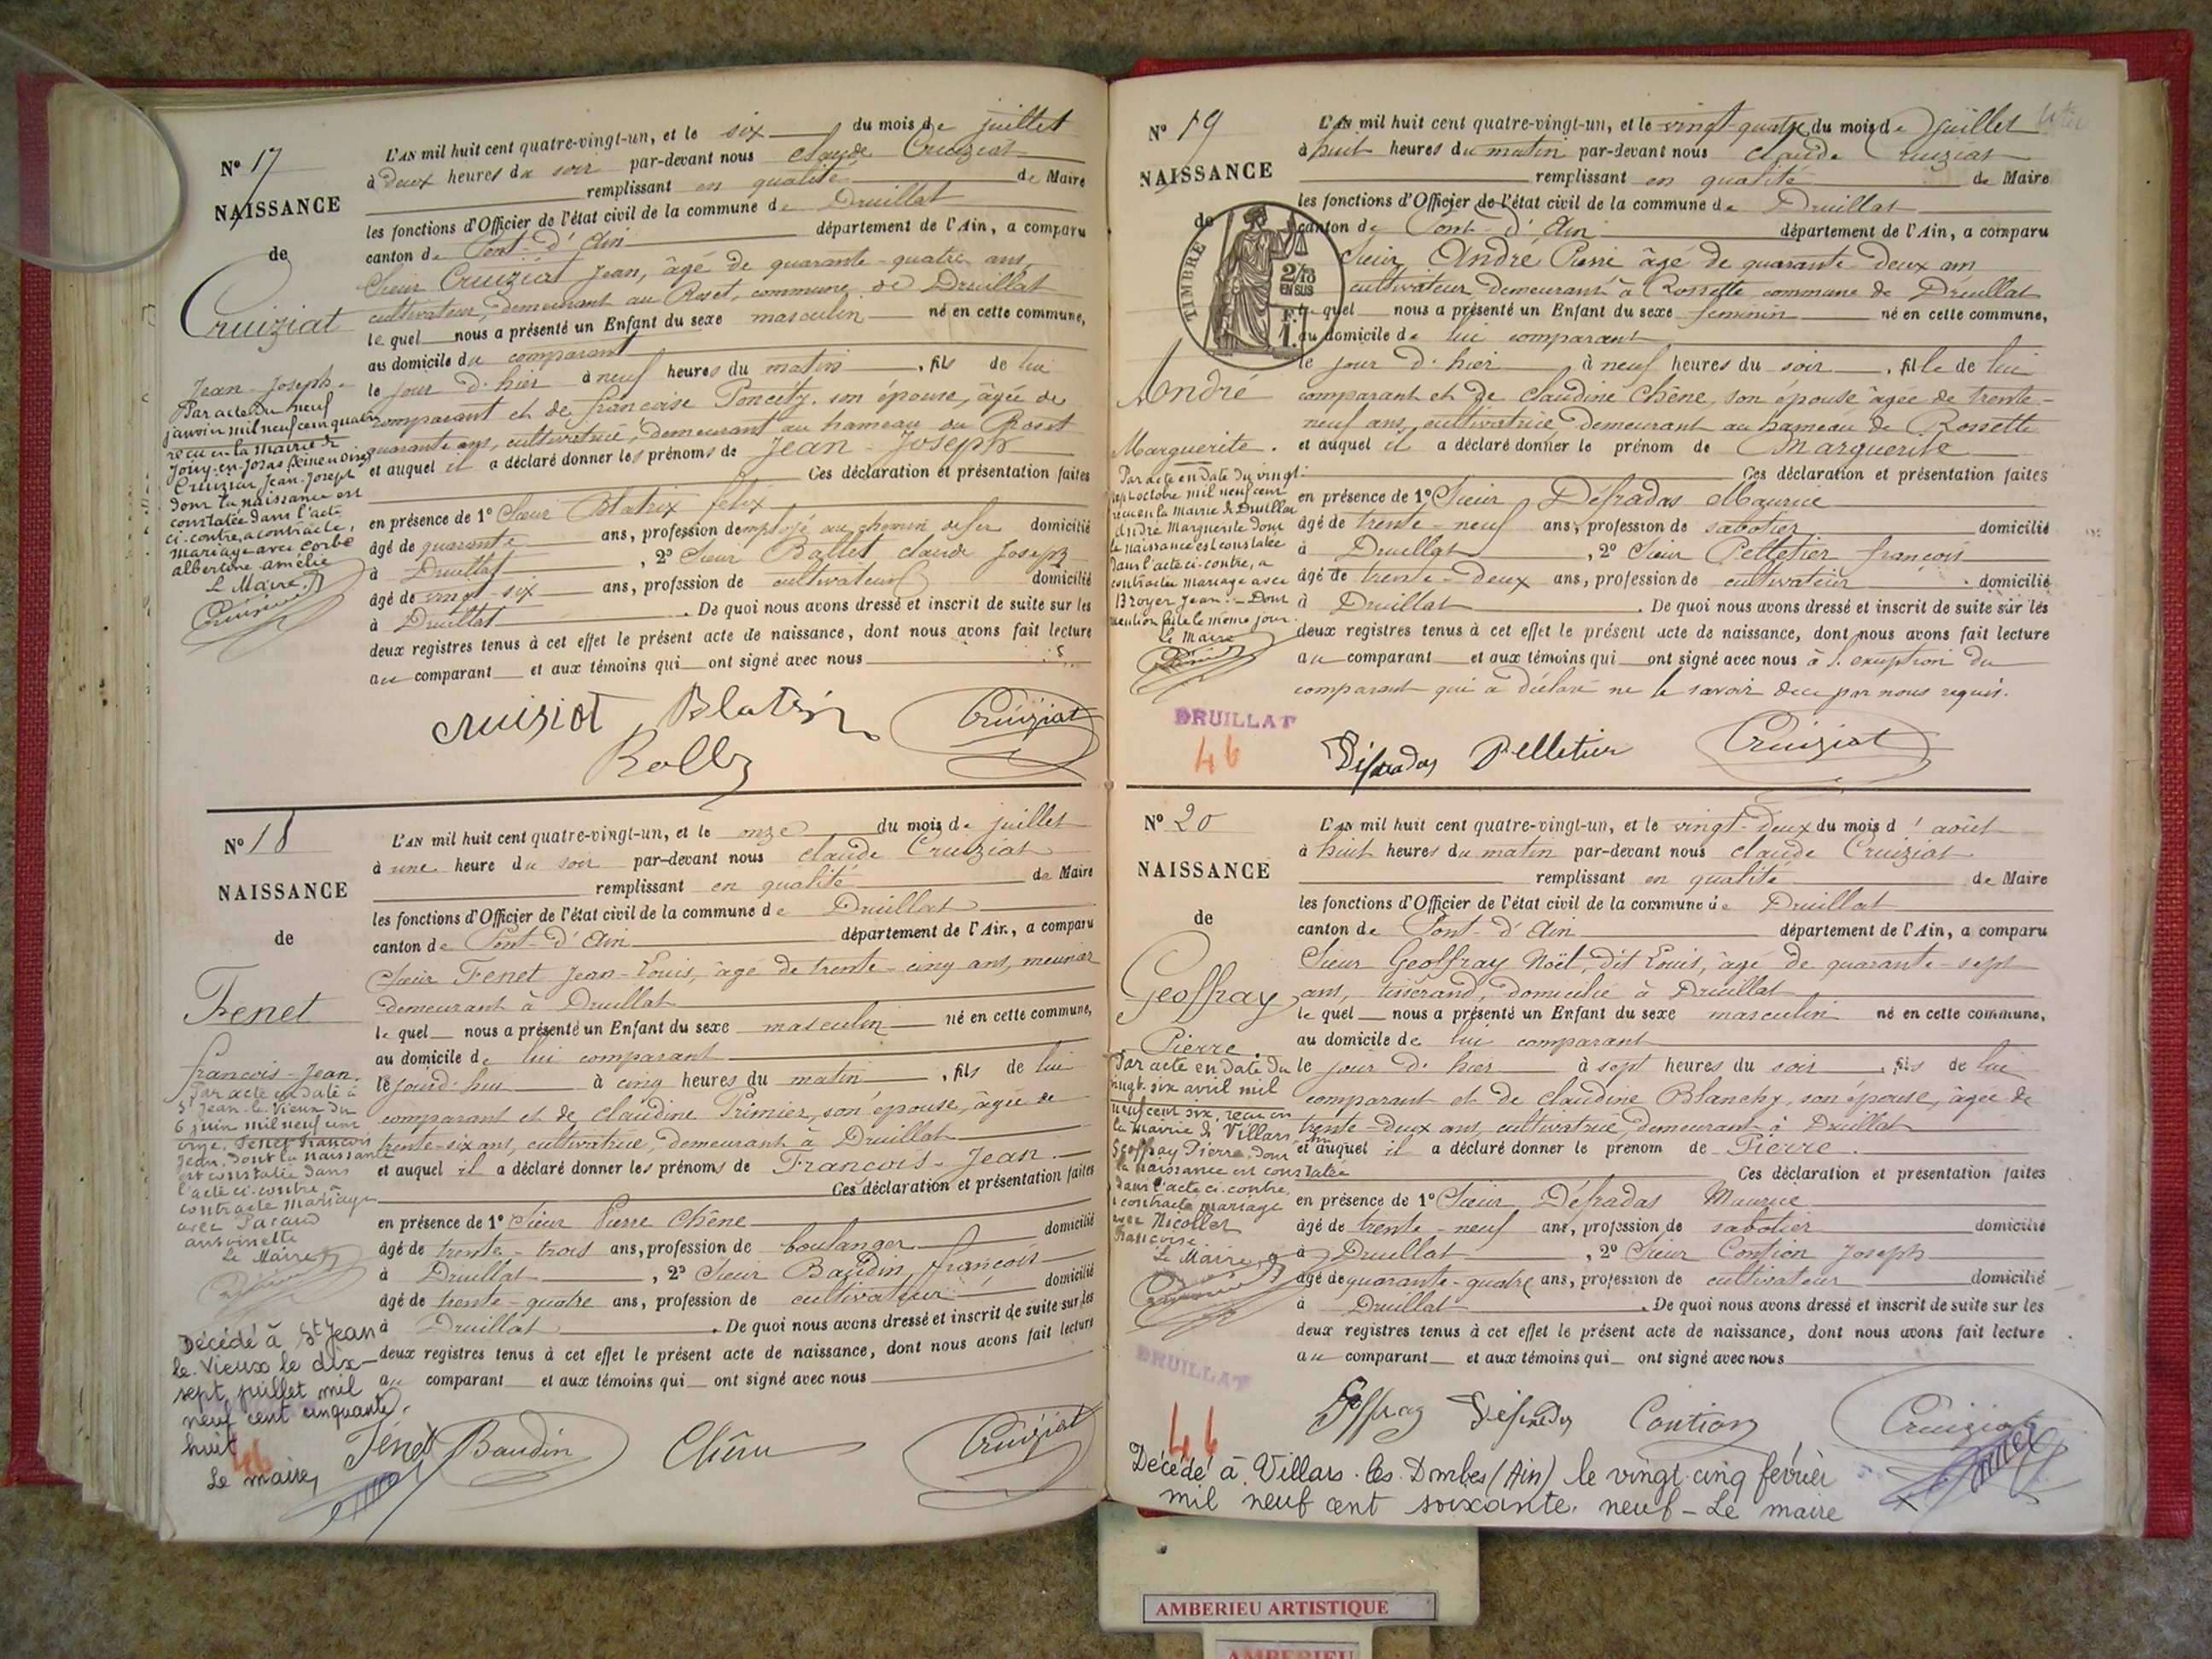 N° 17
NAISSANCE
de
Cruiziat
Jean-Joseph.
Par acte du neuf
janvier mil neuf cent quatre
reçu en la Mairie de
Jouy-en-Josas (Seine et Oise)
Cruiziat Jean-Joseph
dont la naissance est
constatée dans l'acte
ci-contre, a contracté,
mariage avec Corbe
albertine amélie
Le Maire
Cruiziat
L'AN mil huit cent quatre-vingt-un, et le six du mois de juillet
à deux heures du soir par-devant nous claude Cruiziat
remplissant en qualité de Maire
les fonctions d'Officier de l'état civil de la commune de Druillat
canton de Pont-d'Ain département de l'Ain, a comparu
Sieur Cruiziat Jean, âgé de quarante-quatre ans,
cultivateur, demeurant au Roset, commune de Druillat
lequel nous a présenté un Enfant du sexe masculin né en cette commune,
au domicile du comparant
le jour d'hier à neuf heures du matin, fils de lui
comparant et de françoise Poncety, son épouse, âgée de
quarante ans, cultivatrice, demeurant au hameau du Roset
et auquel il a déclaré donner les prénoms de Jean-Joseph
Ces déclaration et présentation faites
en présence de 1° Sieur Blatrix félix
âgé de quarante ans, profession d'employé au chemin de fer domicilié
à Druillat, 2° Sieur Ballet claude Joseph
âgé de vingt-six ans, profession de cultivateur domicilié
à Druillat. De quoi nous avons dressé et inscrit de suite sur les
deux registres tenus à cet effet le présent acte de naissance, dont nous avons fait lecture
au comparant et aux témoins qui ont signé avec nous
cruiziat Blatrix Cruiziat
N° 18
NAISSANCE
de
Fenet
françois-Jean.
Par acte en date à
St Jean-le-Vieux du
6 juin mil neuf cent
onze, Fenet françois
Jean, dont la naissance
est constatée dans
l'acte ci-contre a
contracté mariage
avec Pacaud
antoinette
Le Maire
Décédé à St Jean
le Vieux le dix-
sept juillet mil
neuf cent cinquante
huit
46
Le maire,
L'AN mil huit cent quatre-vingt-un, et le onze du mois de juillet
à une heure du soir par-devant nous claude Cruiziat
remplissant en qualité de Maire
les fonctions d'Officier de l'état civil de la commune de Druillat
canton de Pont-d'Ain département de l'Ain, a comparu
Sieur Fenet Jean-Louis, âgé de trente-cinq ans, meunier
demeurant à Druillat
lequel nous a présenté un Enfant du sexe masculin né en cette commune,
au domicile de lui comparant
le jourd'hui à cinq heures du matin, fils de lui
comparant et de claudine Prémier, son épouse, âgée de
trente-six ans, cultivatrice, demeurant à Druillat
et auquel il a déclaré donner les prénoms de François-Jean.
Ces déclaration et présentation faites
en présence de 1° Sieur Pierre Chêne
âgé de trente-trois ans, profession de boulanger domicilié
à Druillat, 2° Sieur Baudin, françois
âgé de trente-quatre ans, profession de cultivateur domicilié
à Druillat. De quoi nous avons dressé et inscrit de suite sur les
deux registres tenus à cet effet le présent acte de naissance, dont nous avons fait lecture
au comparant et aux témoins qui ont signé avec nous
Fénet Baudin Chêne Cruiziat
N° 19
NAISSANCE
de
TIMBRE
2/10 EN SUS
André
Marguerite.
Par acte en date du vingt
sept octobre mil neuf cent
reçu en la Mairie de Druillat
André Marguerite dont
la naissance est constatée
dans l'acte ci-contre, a
contracté mariage avec
Broyer Jean. - Dont
mention faite le même jour.
Le Maire
DRUILLAT
46
L'AN mil huit cent quatre-vingt-un, et le vingt-quatre du mois de Juillet
à huit heures du matin par-devant nous claude Cruiziat
remplissant en qualité de Maire
les fonctions d'Officier de l'état civil de la commune de Druillat
canton de Pont-d'Ain département de l'Ain, a comparu
Sieur André Pierre âgé de quarante-deux ans
cultivateur, demeurant à Rossette commune de Druillat
lequel nous a présenté un Enfant du sexe féminin né en cette commune,
au domicile de lui comparant
le jour d'hier à neuf heures du soir, fille de lui
comparant et de Claudine Chêne, son épouse âgée de trente-
neuf ans, cultivatrice demeurant au hameau de Rossette
et auquel il a déclaré donner le prénom de Marguerite
Ces déclaration et présentation faites
en présence de 1° Sieur Défradas Maurice
âgé de trente-neuf ans, profession de sabotier domicilié
à Druillat, 2° Sieur Pelletier françois
âgé de trente-deux ans, profession de cultivateur domicilié
à Druillat. De quoi nous avons dressé et inscrit de suite sur les
deux registres tenus à cet effet le présent acte de naissance, dont nous avons fait lecture
au comparant et aux témoins qui ont signé avec nous à l'exeption du
comparant qui a déclaré ne le savoir de ce par nous requis.
Défradas Pelletier Cruiziat
N° 20
NAISSANCE
de
Geoffray
Pierre.
Par acte en date du
vingt-six avril mil
neuf cent six, reçu en
la mairie de Villars,
Geoffray Pierre, dont
la naissance est constatée
dans l'acte ci-contre,
a contracté mariage
avec Nicollet
françoise.
Le Maire
DRUILLAT
46
L'AN mil huit cent quatre-vingt-un, et le vingt-deux du mois d'août
à huit heures du matin par-devant nous claude Cruiziat
remplissant en qualité de Maire
les fonctions d'Officier de l'état civil de la commune de Druillat
canton de Pont-d'Ain département de l'Ain, a comparu
Sieur Geoffray Noël, dit Louis, âgé de quarante-sept
ans, tisserand, domicilié à Druillat
lequel nous a présenté un Enfant du sexe masculin né en cette commune,
au domicile de lui comparant
le jour d'hier à sept heures du soir, fils de lui
comparant et de Claudine Blanchy, son épouse, âgée de
trente-deux ans, cultivatrice, demeurant à Druillat
et auquel il a déclaré donner le prénom de Pierre.
Ces déclaration et présentation faites
en présence de 1° Sieur Défradas Maurice
âgé de trente-neuf ans, profession de sabotier domicilié
à Druillat, 2° Sieur Contion Joseph
âgé de quarante-quatre ans, profession de cultivateur domicilié
à Druillat. De quoi nous avons dressé et inscrit de suite sur les
deux registres tenus à cet effet le présent acte de naissance, dont nous avons fait lecture
au comparant et aux témoins qui ont signé avec nous
Geoffray Défradas Contion Cruiziat
Décédé à Villars-les-Dombes (Ain) le vingt-cinq février
mil neuf cent soixante-neuf - Le maire
AMBERIEU ARTISTIQUE
AMBERIEU